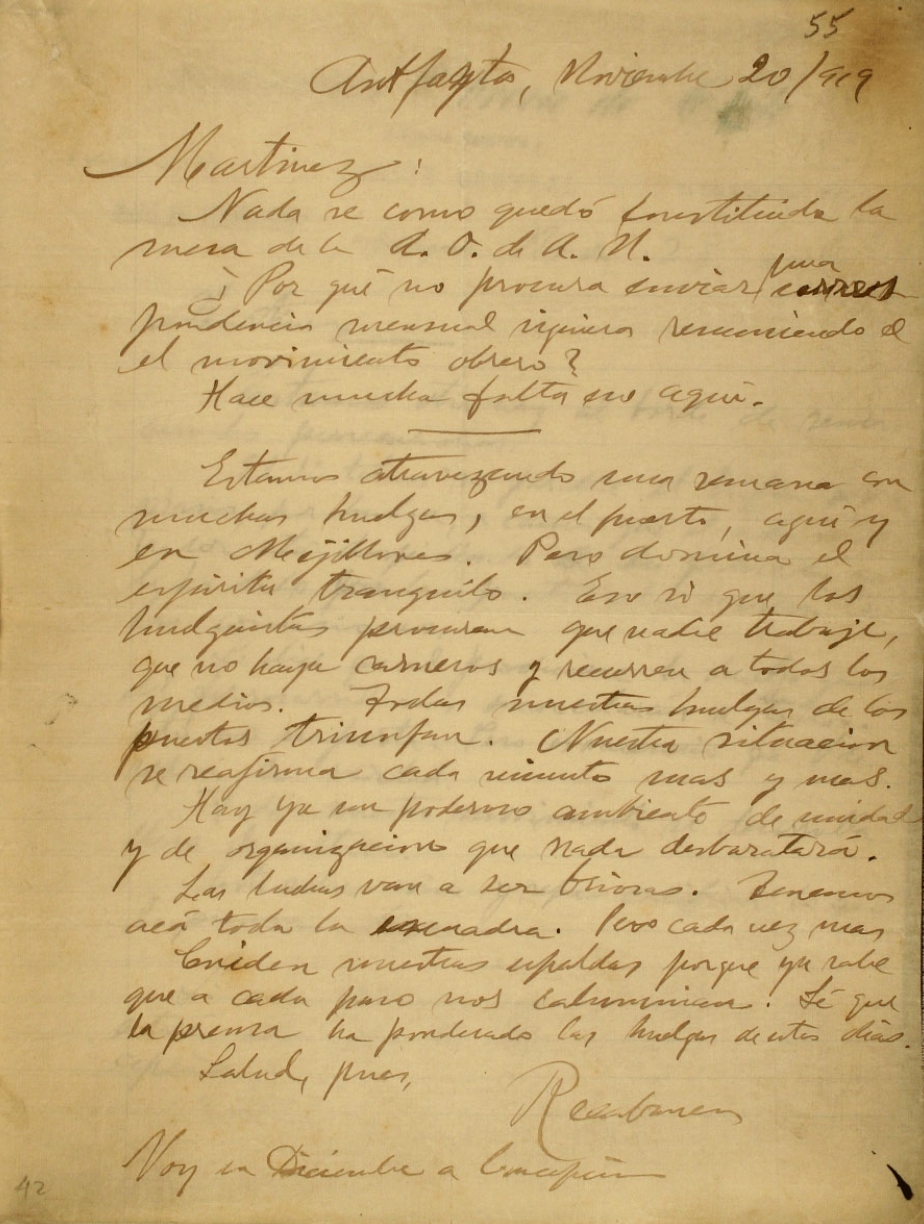 55
Antofagasta, Noviembre 20/919
Martinez:
Nada se como quedó constituida la
mesa de la A. O. de A. N.
¿Por qué no procura enviar una corres
pondencia mensual siquiera resumiendo el
el movimiento obrero?
Hace mucha falta eso aquí.
Estamos atravezando una semana con
muchas huelgas, en el puerto, aquí y
en Mejillones. Pero domina el
espíritu tranquilo. Eso si que los
huelguistas procuran que nadie trabaje,
que no haya carneros y recurren a todos los
medios. Todas nuestras huelgas de los
puertos triunfan. Nuestra situacion
se reafirma cada minuto mas y mas.
Hay ya un poderoso ambiente de unidad
y de organizacion que nada desbaratará.
Las luchas van a ser . Tenemos
acá toda la escuadra. Pero cada vez mas
Cuiden nuestras espaldas porque ya sabe
que a cada paso nos calumnian. Sé que
la prensa ha ponderado las huelgas de estos dias.
Salud, pues,
Recabarren
Voy en Diciembre a Concepción
42